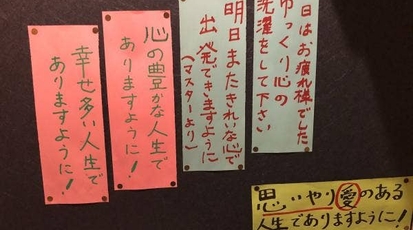 日はお疲れ様でした
ゆっくり心の
洗濯をして下さい
明日またきれいな心で
出発できますように
（マスターより）
心の豊かな人生で
ありますように！
幸せ多い人生で
ありますように！
思いやり愛のある
人生でありますように！